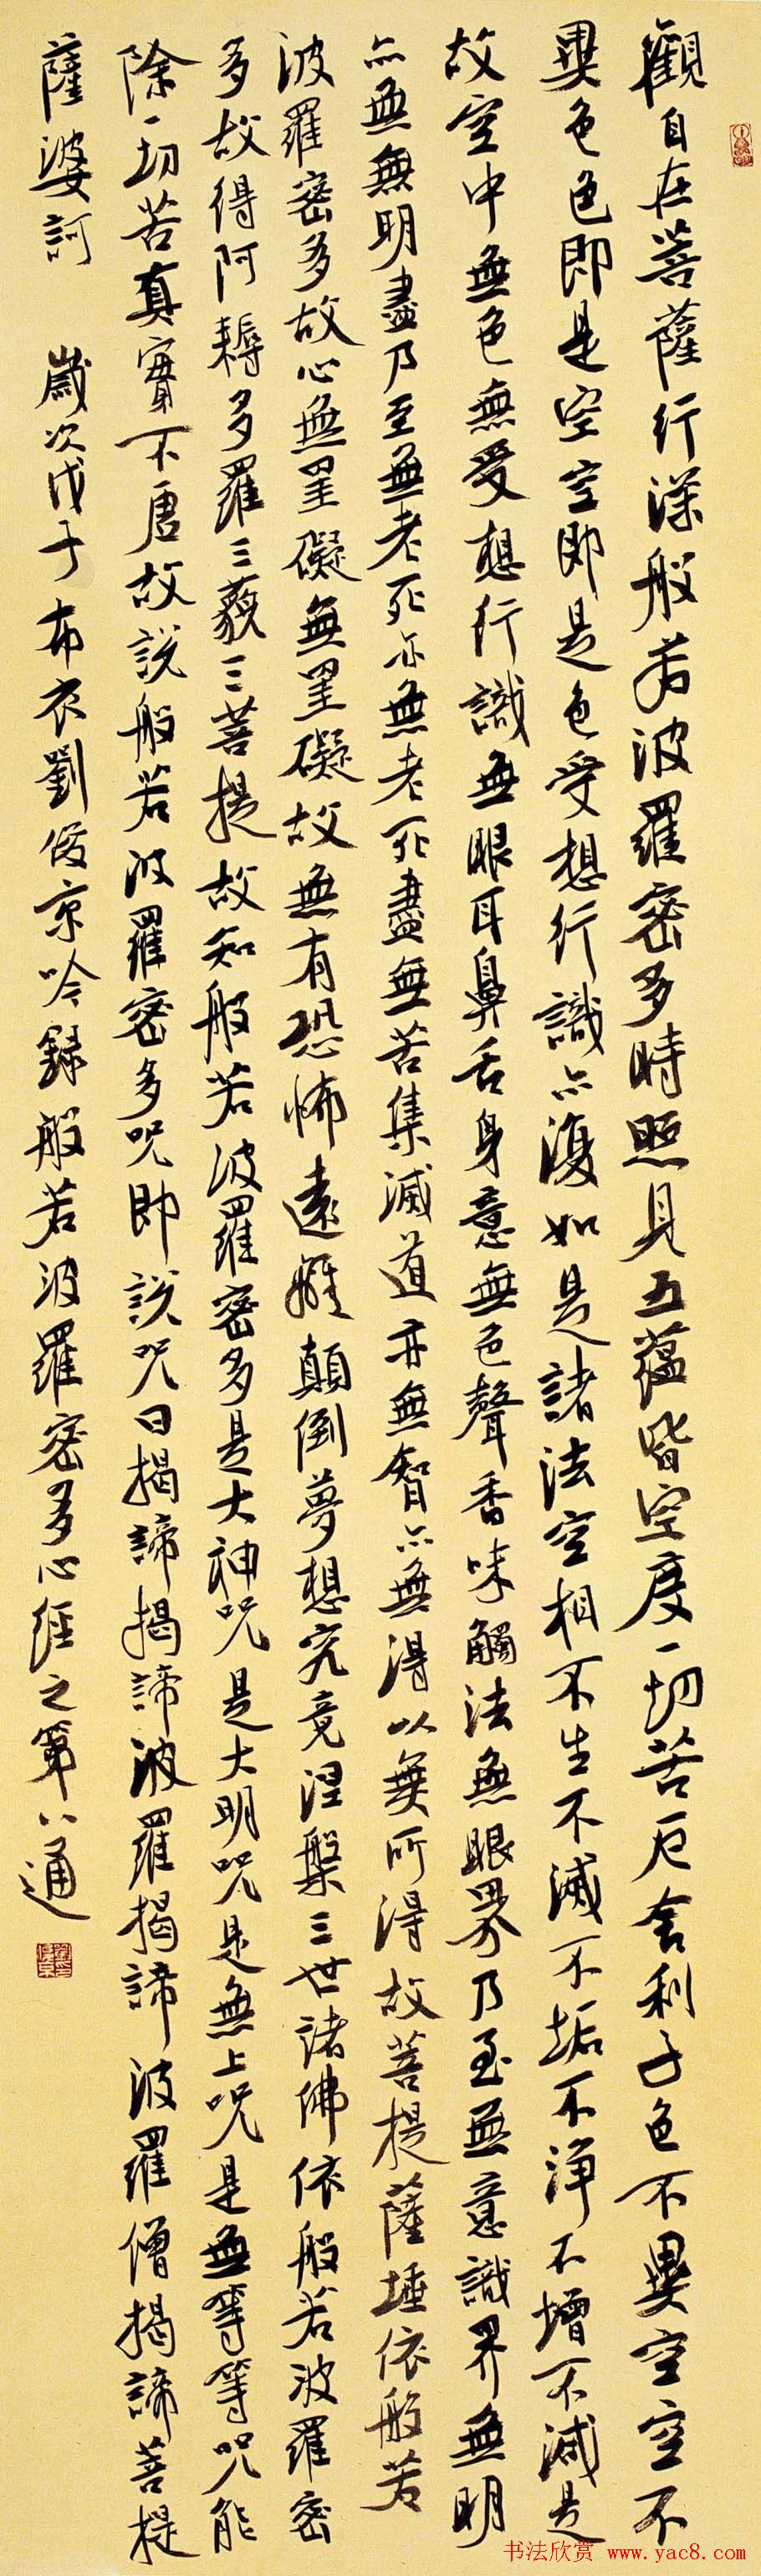 觀自在菩薩行深般若波羅密多時照見五蘊皆空度一切苦厄舍利子色不異空空不
異色色即是空空即是色受想行識亦復如是諸法空相不生不滅不垢不淨不增不減是
故空中無色無受想行識無眼耳鼻舌身意無色聲香味觸法無眼界乃至無意識界無明
亦無無明盡乃至無老死亦無老死盡無苦集滅道亦無智亦無得以無所得故菩提薩埵依般若
波羅密多故心無罣礙無罣礙故無有恐怖遠離顛倒夢想究竟涅槃三世諸佛依般若波羅密
多故得阿耨多羅三藐三菩提故知般若波羅密多是大神呪是大明呪是無上呪是無等等呪能
除一切苦真實不虛故說般若波羅密多呪即說呪曰揭諦揭諦波羅揭諦波羅僧揭諦菩提
薩婆訶 歲次戊子布衣劉俊京吟錄般若波羅密多心經之第八通
书法欣赏 www.yac8.com